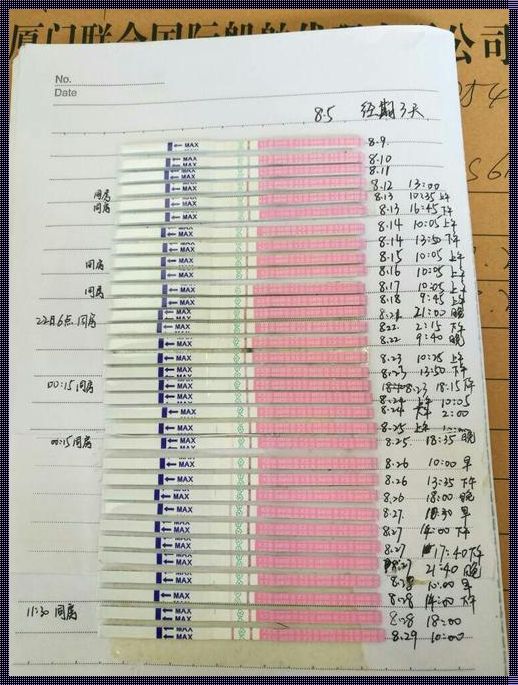 厦门联合国际船舶代理有限公司
No.
Date
8.5 经期3天
MAX 8.9.
MAX 8.10
MAX 8.11
MAX 8.12 13:00
同房 MAX 8.13 10:35 上午
同房 MAX 8.13 16:45 下午
MAX 8.14 10:05 上午
MAX 8.14 13:50 下午
MAX 8.15 10:05 上午
同房 MAX 8.16 10:05 上午
同房 MAX 8.17 10:05 上午
MAX 8.18 9:45 上午
MAX 8.21 21:00 晚
22日6点 同房 MAX 8.22 2:15 下午
MAX 8.22 9:40 晚
MAX 8.23 10:25 上午
MAX 8.23 13:50 下午
00:15 同房 MAX 8.23 18:15 下午
MAX 8.24 上午 10:05
MAX 8.24 下午 2:00
MAX 8.25 上午
00:15 同房 MAX 8.25 18:35 晚
MAX 8.26 10:00 早
MAX 8.26 13:35 下午
MAX 8.26 18:00 晚
MAX 8.27 10:30 早
MAX 8.27 14:00 下午
MAX 8.27 17:40 下午
MAX 8.27 21:40 晚
MAX 8.28 10:00 早
MAX 8.28 14:00 下午
11:30 同房 MAX 8.28 18:00
MAX 8.29 10:00